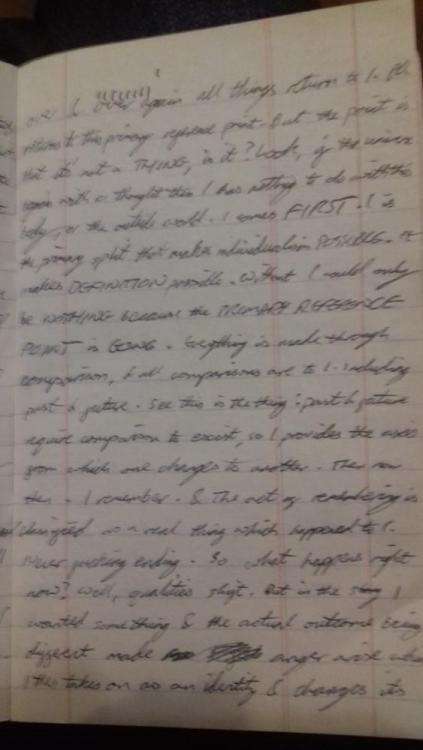 over & over again all things return to I. All
return to this primary reference point. But the point is
that it's not a THING, is it? Look, if the universe
comes with a thought then I has nothing to do with the
body, or the outside world. I comes FIRST. I is
the primary split that makes individualism POSSIBLE. It
makes DEFINITION possible. Without I could only
be NOTHING because the PRIMARY REFERENCE
POINT is GONE. Everything is made through
comparison, & all comparisons are to I - including
past & future. See this is the thing: past & future
require comparison to exist, so I provides the
from which one changes to another. Then now
then. I remember. & The act of remembering is
designed as a real thing which happened to I.
Never fucking ending. So what happens right
now? Well, qualities shift. But in the story I
wanted something & the actual outcome being
different made anger arise
I then takes on as an identity & changes its